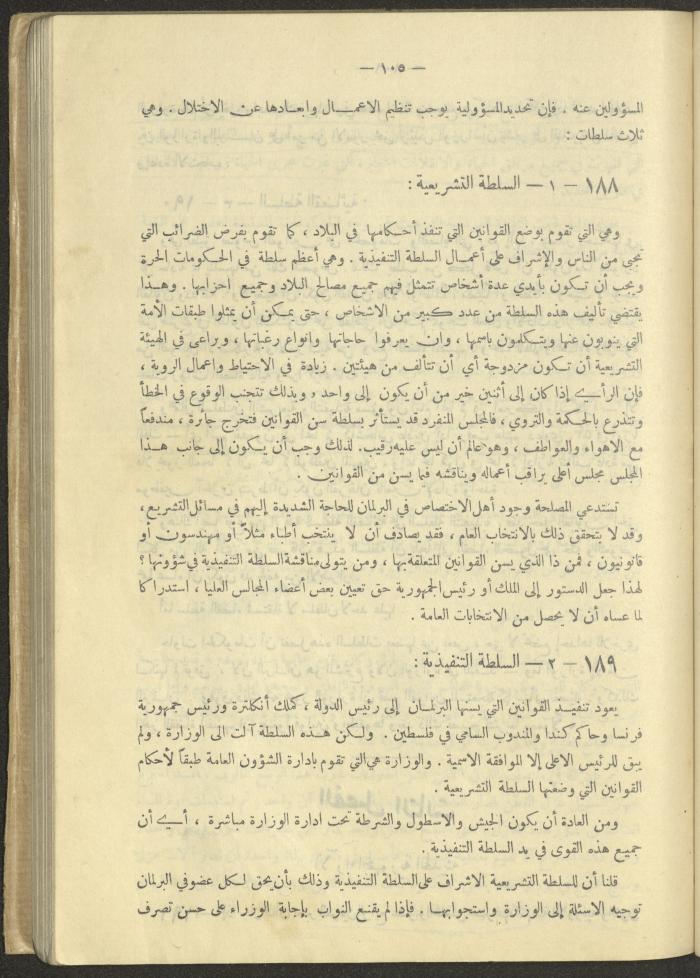 — ١٠٥ —
المسؤولين عنه . فإن تحديدالمسؤولية يوجب تنظيم الاعمال وابعادها عن الاختلال . وهي
ثلاث سلطات :
١٨٨ — ١ — السلطة التشريعية :
وهي التي تقوم بوضع القوانين التي تنفذ أحكامها في البلاد ، كما تقوم بفرض الضرائب التي
تجبى من الناس والإشراف على أعمال السلطة التنفيذية . وهي أعظم سلطة في الحكومات الحرة
ويجب أن تكون بأيدي عدة أشخاص تتمثل فيهم جميع مصالح البلاد وجميع احزابها . وهذا
يقتضي تأليف هذه السلطة من عدد كبير من الاشخاص ، حتى يمكن أن يمثلوا طبقات الأمة
التي ينوبون عنها ويتكلمون باسمها ، وان يعرفوا حاجاتها وانواع رغباتها ، ويراعى في الهيئة
التشريعية أن تكون مزدوجة أي أن تتألف من هيئتين . زيادة في الاحتياط واعمال الروية ،
فإن الرأي إذا كان إلى أثنين خير من أن يكون إلى واحد ، وبذلك تتجنب الوقوع في الخطأ
وتتذرع بالحكمة والتروي ، فالمجلس المنفرد قد يستأثر بسلطة سن القوانين فتخرج جائرة ، مندفعاً
مع الاهواء والعواطف ، وهو عالم أن ليس عليه رقيب. لذلك وجب أن يكون إلى جانب هذا
المجلس مجلس أعلى يراقب أعماله ويناقشه فيما يسن من القوانين .
تستدعي المصلحة وجود أهل الاختصاص في البرلمان للحاجة الشديدة إليهم في مسائل التشريع ،
وقد لا يتحقق ذلك بالانتخاب العام ، فقد يصادف أن لا ينتخب أطباء مثلاً أو مهندسون أو
قانونيون ، فمن ذا الذي يسن القوانين المتعلقة بها ، ومن يتولى مناقشة السلطة التنفيذية في شؤونها ؟
لهذا جعل الدستور إلى الملك أو رئيس الجمهورية حق تعيين بعض أعضاء المجالس العليا ، استدراكا
لما عساه أن لا يحصل من الانتخابات العامة .
١٨٩ — ٢ — السلطة التنفيذية :
يعود تنفيذ القوانين التي يسنها البرلمان إلى رئيس الدولة ، كملك أنكلترة ورئيس جمهورية
فرنسا وحاكم كندا والمندوب السامي في فلسطين . ولكن هذه السلطة آلت الى الوزارة ، ولم
يبق للرئيس الاعلى إلا الموافقة الاسمية . والوزارة هي التي تقوم بادارة الشؤون العامة طبقاً لأحكام
القوانين التي وضعتها السلطة التشريعية .
ومن العادة أن يكون الجيش والاسطول والشرطة تحت ادارة الوزارة مباشرة ، أي أن
جميع هذه القوى في يد السلطة التنفيذية .
قلنا أن للسلطة التشريعية الاشراف على السلطة التنفيذية وذلك بأن يحق لكل عضو في البرلمان
توجيه الاسئلة إلى الوزارة واستجوابها . فإذا لم يقنع النواب بإجابة الوزراء على حسن تصرف